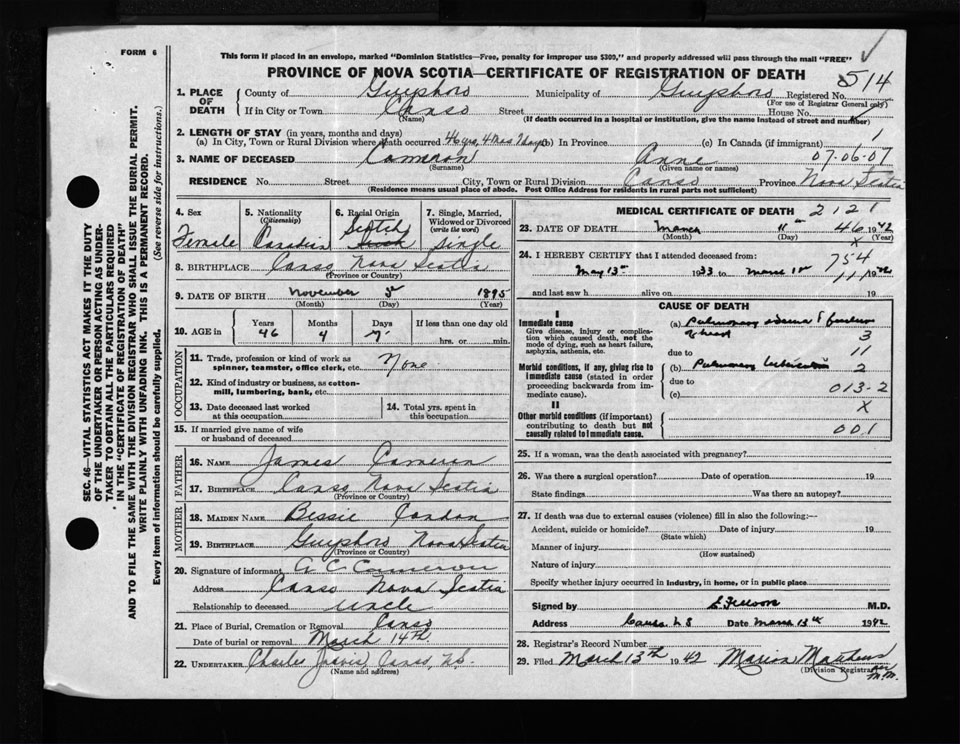 FORM 6
This form if placed in an envelope, marked "Dominion Statistics—Free, penalty for improper use $300," and properly addressed will pass through the mail "FREE"
PROVINCE OF NOVA SCOTIA—CERTIFICATE OF REGISTRATION OF DEATH
514
1. PLACE OF DEATH
County of Guysboro Municipality of Guysboro Registered No.
(For use of Registrar General only)
If in City or Town Canso Street House No.
(Name) (If death occurred in a hospital or institution, give the name instead of street and number)
2. LENGTH OF STAY (in years, months and days)
(a) In City, Town or Rural Division where death occurred 46 yrs, 4 mos 7 days (b) In Province (c) In Canada (if immigrant) 1
3. NAME OF DECEASED Cameron Anne 07-06-07
(Surname) (Given name or names)
RESIDENCE No. Street City, Town or Rural Division Canso Province Nova Scotia
(Residence means usual place of abode. Post Office Address for residents in rural parts not sufficient)
SEC. 46—VITAL STATISTICS ACT MAKES IT THE DUTY
OF THE UNDERTAKER OR PERSON ACTING AS UNDER-
TAKER TO OBTAIN ALL THE PARTICULARS REQUIRED
IN THE "CERTIFICATE OF REGISTRATION OF DEATH"
AND TO FILE THE SAME WITH THE DIVISION REGISTRAR WHO SHALL ISSUE THE BURIAL PERMIT.
WRITE PLAINLY WITH UNFADING INK. THIS IS A PERMANENT RECORD.
Every item of information should be carefully supplied. (See reverse side for instructions.)
4. Sex
Female
5. Nationality
(Citizenship)
Canadian
6. Racial Origin
Scotch
7. Single, Married, Widowed or Divorced
(write the word)
Single
8. BIRTHPLACE Canso Nova Scotia
(Province or Country)
9. DATE OF BIRTH November 5 1895
(Month) (Day) (Year)
10. AGE in
Years Months Days If less than one day old
46 4 7 hrs. or min.
OCCUPATION
11. Trade, profession or kind of work as
spinner, teamster, office clerk, etc. None
12. Kind of industry or business, as cotton-
mill, lumbering, bank, etc.
13. Date deceased last worked
at this occupation
14. Total yrs. spent in
this occupation
15. If married give name of wife
or husband of deceased
FATHER
16. NAME James Cameron
17. BIRTHPLACE Canso Nova Scotia
(Province or Country)
MOTHER
18. MAIDEN NAME Bessie Condon
19. BIRTHPLACE Guysboro Nova Scotia
(Province or Country)
20. Signature of informant A C Cameron
Address Canso Nova Scotia
Relationship to deceased Uncle
21. Place of Burial, Cremation or Removal Canso
Date of burial or removal March 14th
22. UNDERTAKER Charles Jarvis, Canso, N.S.
(Name and address)
MEDICAL CERTIFICATE OF DEATH 2121
23. DATE OF DEATH March 11 46 1942
(Month) (Day) (Year)
x
24. I HEREBY CERTIFY that I attended deceased from: 754
May 13th 1933 to March 1942
and last saw h alive on 19
CAUSE OF DEATH
I
Immediate cause
Give disease, injury or complication which caused death, not the mode of dying, such as heart failure, asphyxia, asthenia, etc.
(a) Pulmonary edema & failure
of heart 3
due to 11
Morbid conditions, if any, giving rise to immediate cause (stated in order proceeding backwards from immediate cause).
(b) Pulmonary tuberculosis 2
due to 013-2
(c)
II
Other morbid conditions (if important) contributing to death but not causally related to immediate cause.
x
001
25. If a woman, was the death associated with pregnancy?
26. Was there a surgical operation? Date of operation 19
State findings Was there an autopsy?
27. If death was due to external causes (violence) fill in also the following:—
Accident, suicide or homicide? Date of injury 19
(State which)
Manner of injury
(How sustained)
Nature of injury
Specify whether injury occurred in industry, in home, or in public place
Signed by M.D.
Address Canso N S Date March 13th 1942
28. Registrar's Record Number
29. Filed March 13th 1942 Marion Matthews
(Division Registrar)
per M.M.